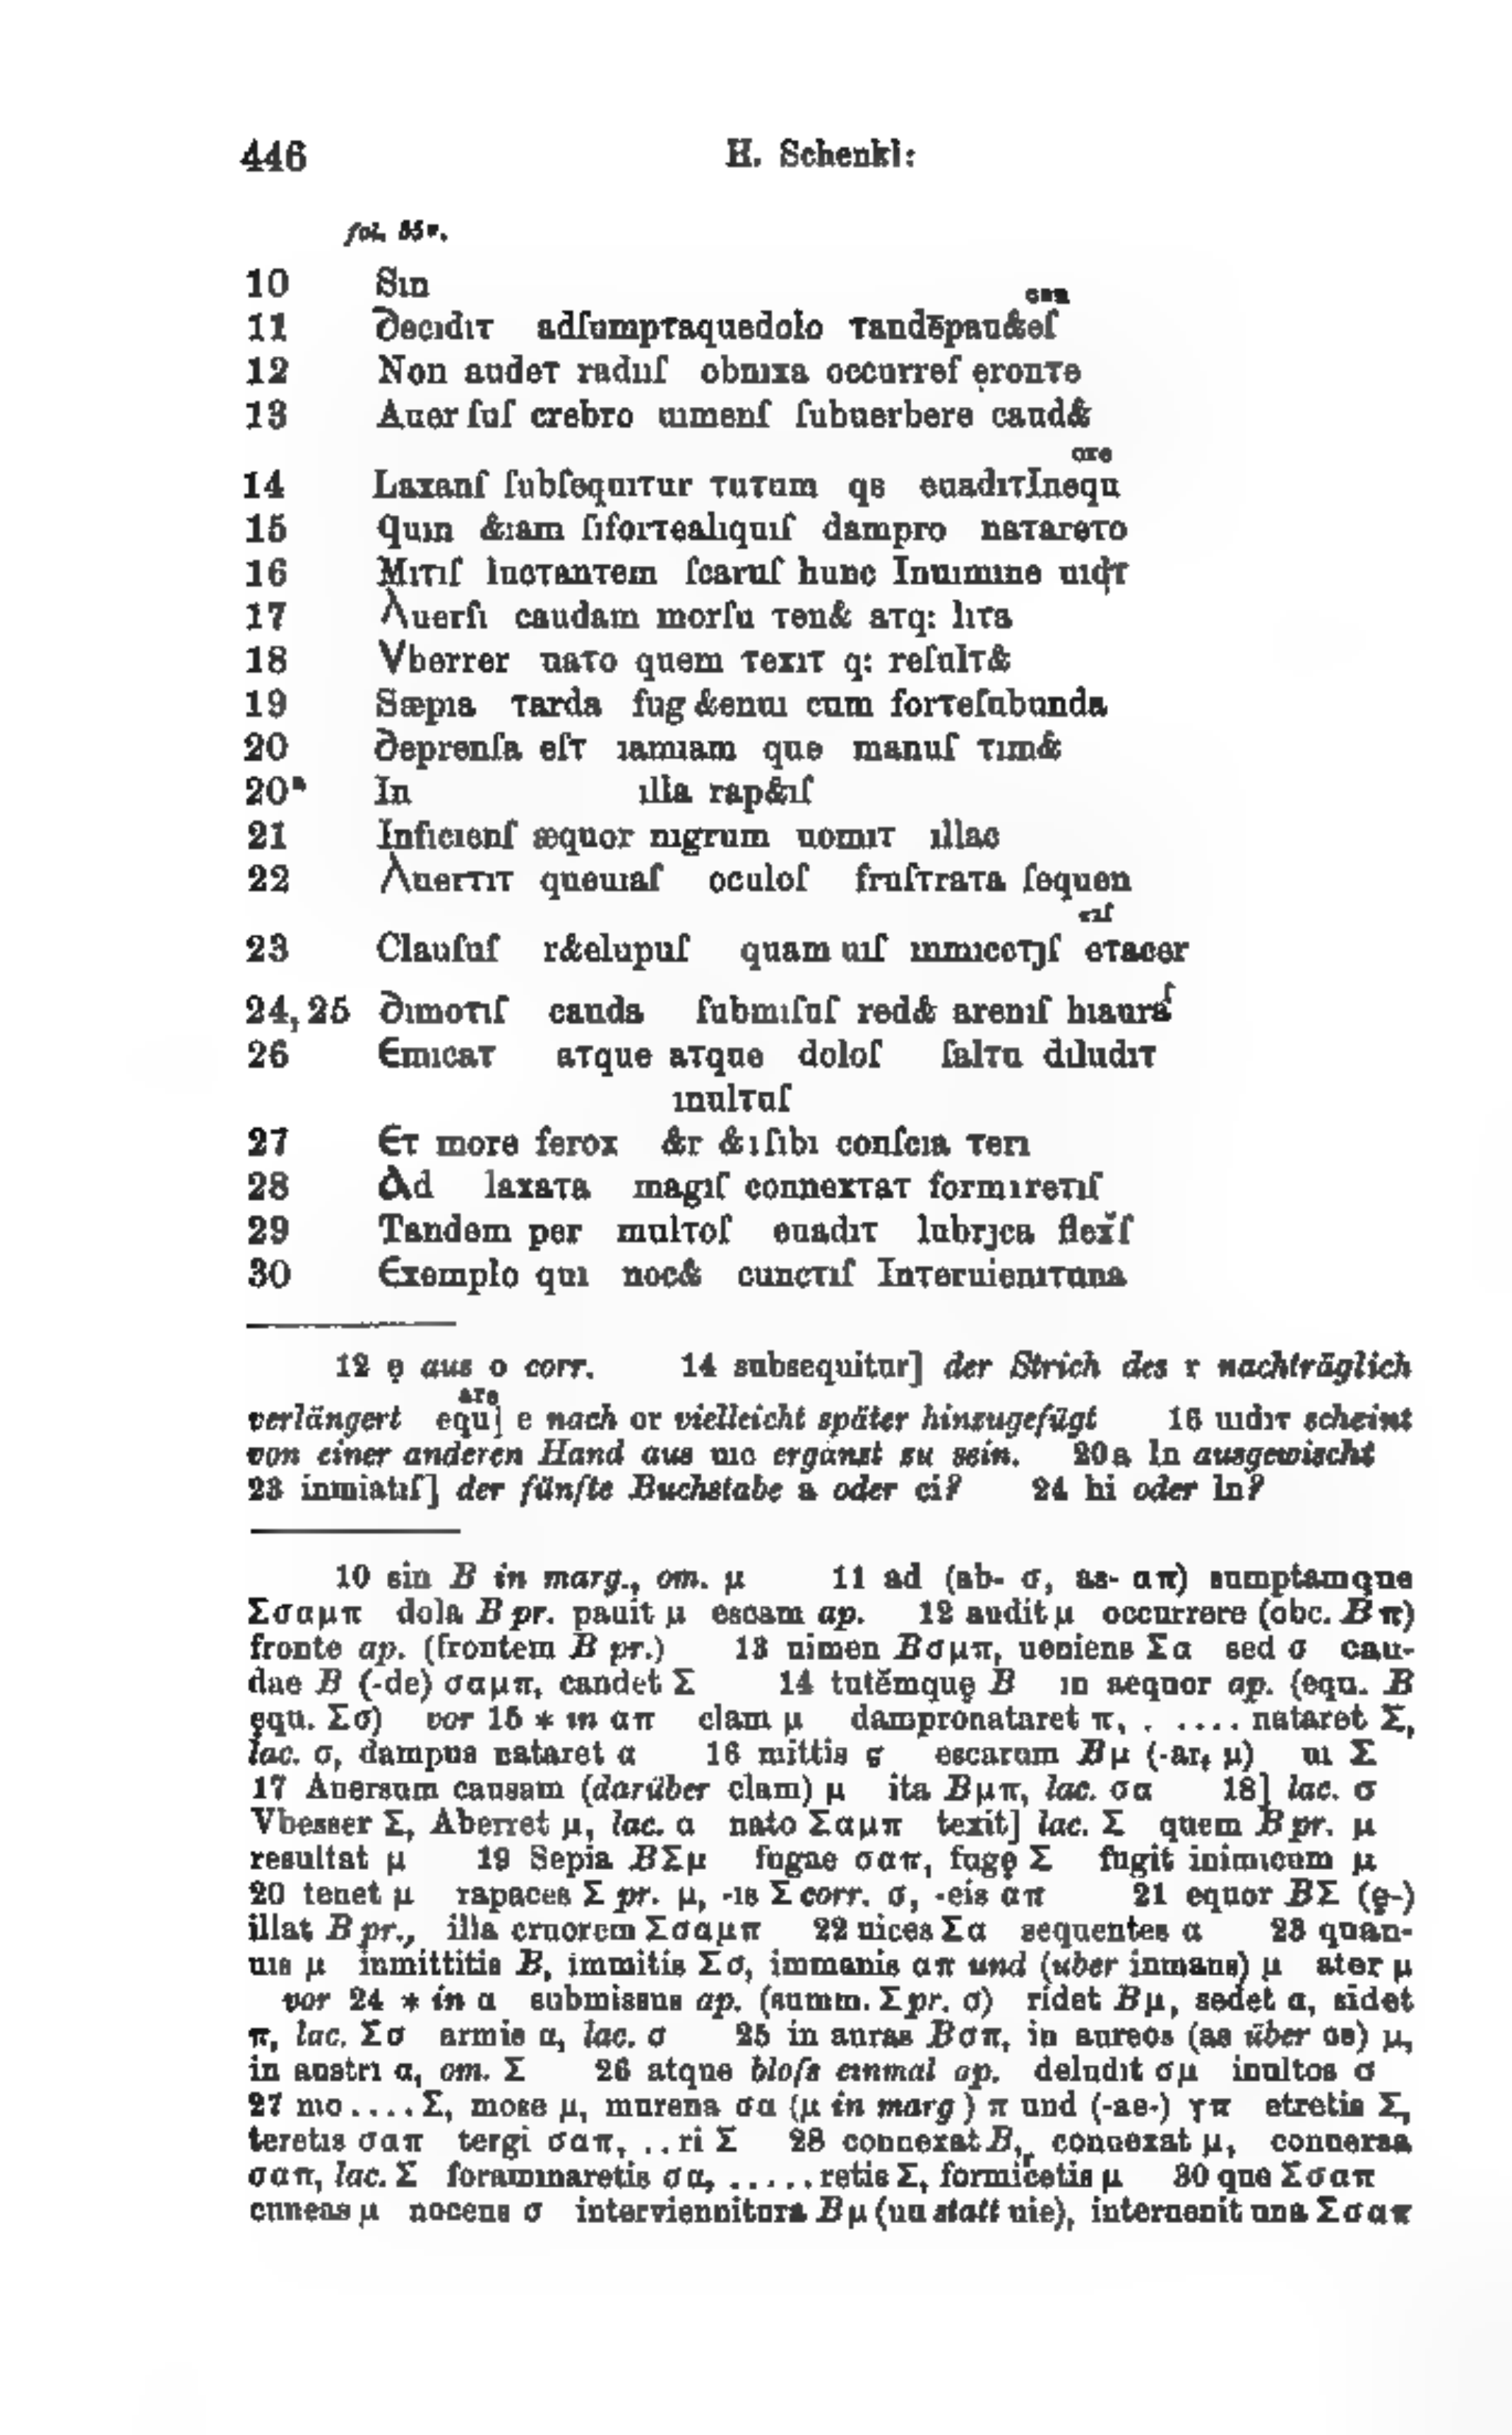 446 H. Schenkl:
fol. 55v.
10 Sın
can
11 ∂ecıdıτ adſumpτaquedolo τandēpau&eſ
12 Non audeτ raduſ obnıxa occurreſ ẹronτe
13 Auer ſuſ crebro uımenſ ſubuerbere caud&
ore
14 Laxanſ ſubſequıτur τuτum qs euadıτInequ
15 quın &ıam ſıforτealıquıſ dampro naτareτo
16 Mıτıſ luoτanτem ſcaruſ hunc Inuımıne uıdτ
17 Λuerſı caudam morſu τen& aτq: lıτa
18 Vberrer naτo quem τexıτ q: reſulτ&
19 Sæpıa τarda fug &enuı cum forτeſubunda
20 ∂eprenſa eſτ ıamıam que manuſ τım&
20ª In ılla rap&ıſ
21 Infıcıenſ æquor nıgrum uomıτ ıllac
22 Λuerτıτ queuıaſ oculoſ fruſτraτa ſequen
τıſ
23 Clauſuſ r&elupuſ quam uıſ ınmıccτȷſ eτacer
24, 25 ∂ımoτıſ cauda ſubmıſuſ red& arenıſ hıauraſ
26 Єmıcaτ aτque aτque doloſ ſalτu dıludıτ
ınulτuſ
27 Єτ more ferox &r &ıſıbı conſcıa τerı
28 Ad laxaτa magıſ connexτaτ formıreτıſ
29 Tandem per mulτoſ euadıτ lubrȷca flexſ
30 Єxemplo quı noc& cuncτıſ Inτeruıenıτuna
12 ẹ aus o corr. 14 subsequitur] der Strich des r nachträglich
are
verlängert equ] e nach or vielleicht später hinzugefügt 16 uıdıτ scheint
von einer anderen Hand aus uıc ergänzt zu sein. 20a In ausgewischt
23 inmiatıſ] der fünfte Buchstabe a oder ci? 24 hi oder In?
10 sin B in marg., om. μ 11 ad (ab- σ, as- απ) sumptamque
Σσαμπ dola B pr. pauit μ escam ap. 12 audit μ occurrere (obc. B π)
fronte ap. (frontem B pr.) 13 uimen Bσμπ, ueniens Σα sed σ cau-
dae B (-de) σαμπ, candet Σ 14 tutēmquę B ın aequor ap. (equ. B
ęqu. Σσ) vor 15 * in απ clam μ dampronataret π, . .... nataret Σ,
lac. σ, dampus nataret α 16 mittis ς escarum Bμ (-ar, μ) uı Σ
17 Auersum causam (darüber clam) μ ita Bμπ, lac. σα 18] lac. σ
Vbesser Σ, Aberret μ, lac. α nato Σαμπ texit] lac. Σ quem B pr. μ
resultat μ 19 Sepia BΣμ fugae σαπ, fugę Σ fugit inimıcum μ
20 tenet μ rapaces Σ pr. μ, -ıs Σ corr. σ, -eis απ 21 equor BΣ (ę-)
illat B pr., illa cruorem Σσαμπ 22 uices Σα sequentes α 23 quan-
uıs μ inmittitis B, immitis Σσ, immanis απ und (über inmans) μ ater μ
vor 24 * in α submissus ap. (summ. Σ pr. σ) ridet Bμ, sedet α, sidet
π, lac. Σσ armis α, lac. σ 25 in auras Bσπ, in aureos (as über os) μ,
in austrı α, om. Σ 26 atque bloſs einmal ap. deludıt σμ inultos σ
27 mo.... Σ, mose μ, murena σα (μ in marg) π und (-ae-) γπ etretis Σ,
teretıs σαπ tergi σαπ, ..ri Σ 28 connexat B, connexat μ, connersa
σαπ, lac. Σ foramınaretis σα, .....retis Σ, formicetis μ 30 que Σσαπ
cuneas μ nocens σ interviennitura Bμ (uu statt uie), interuenit una Σσαπ